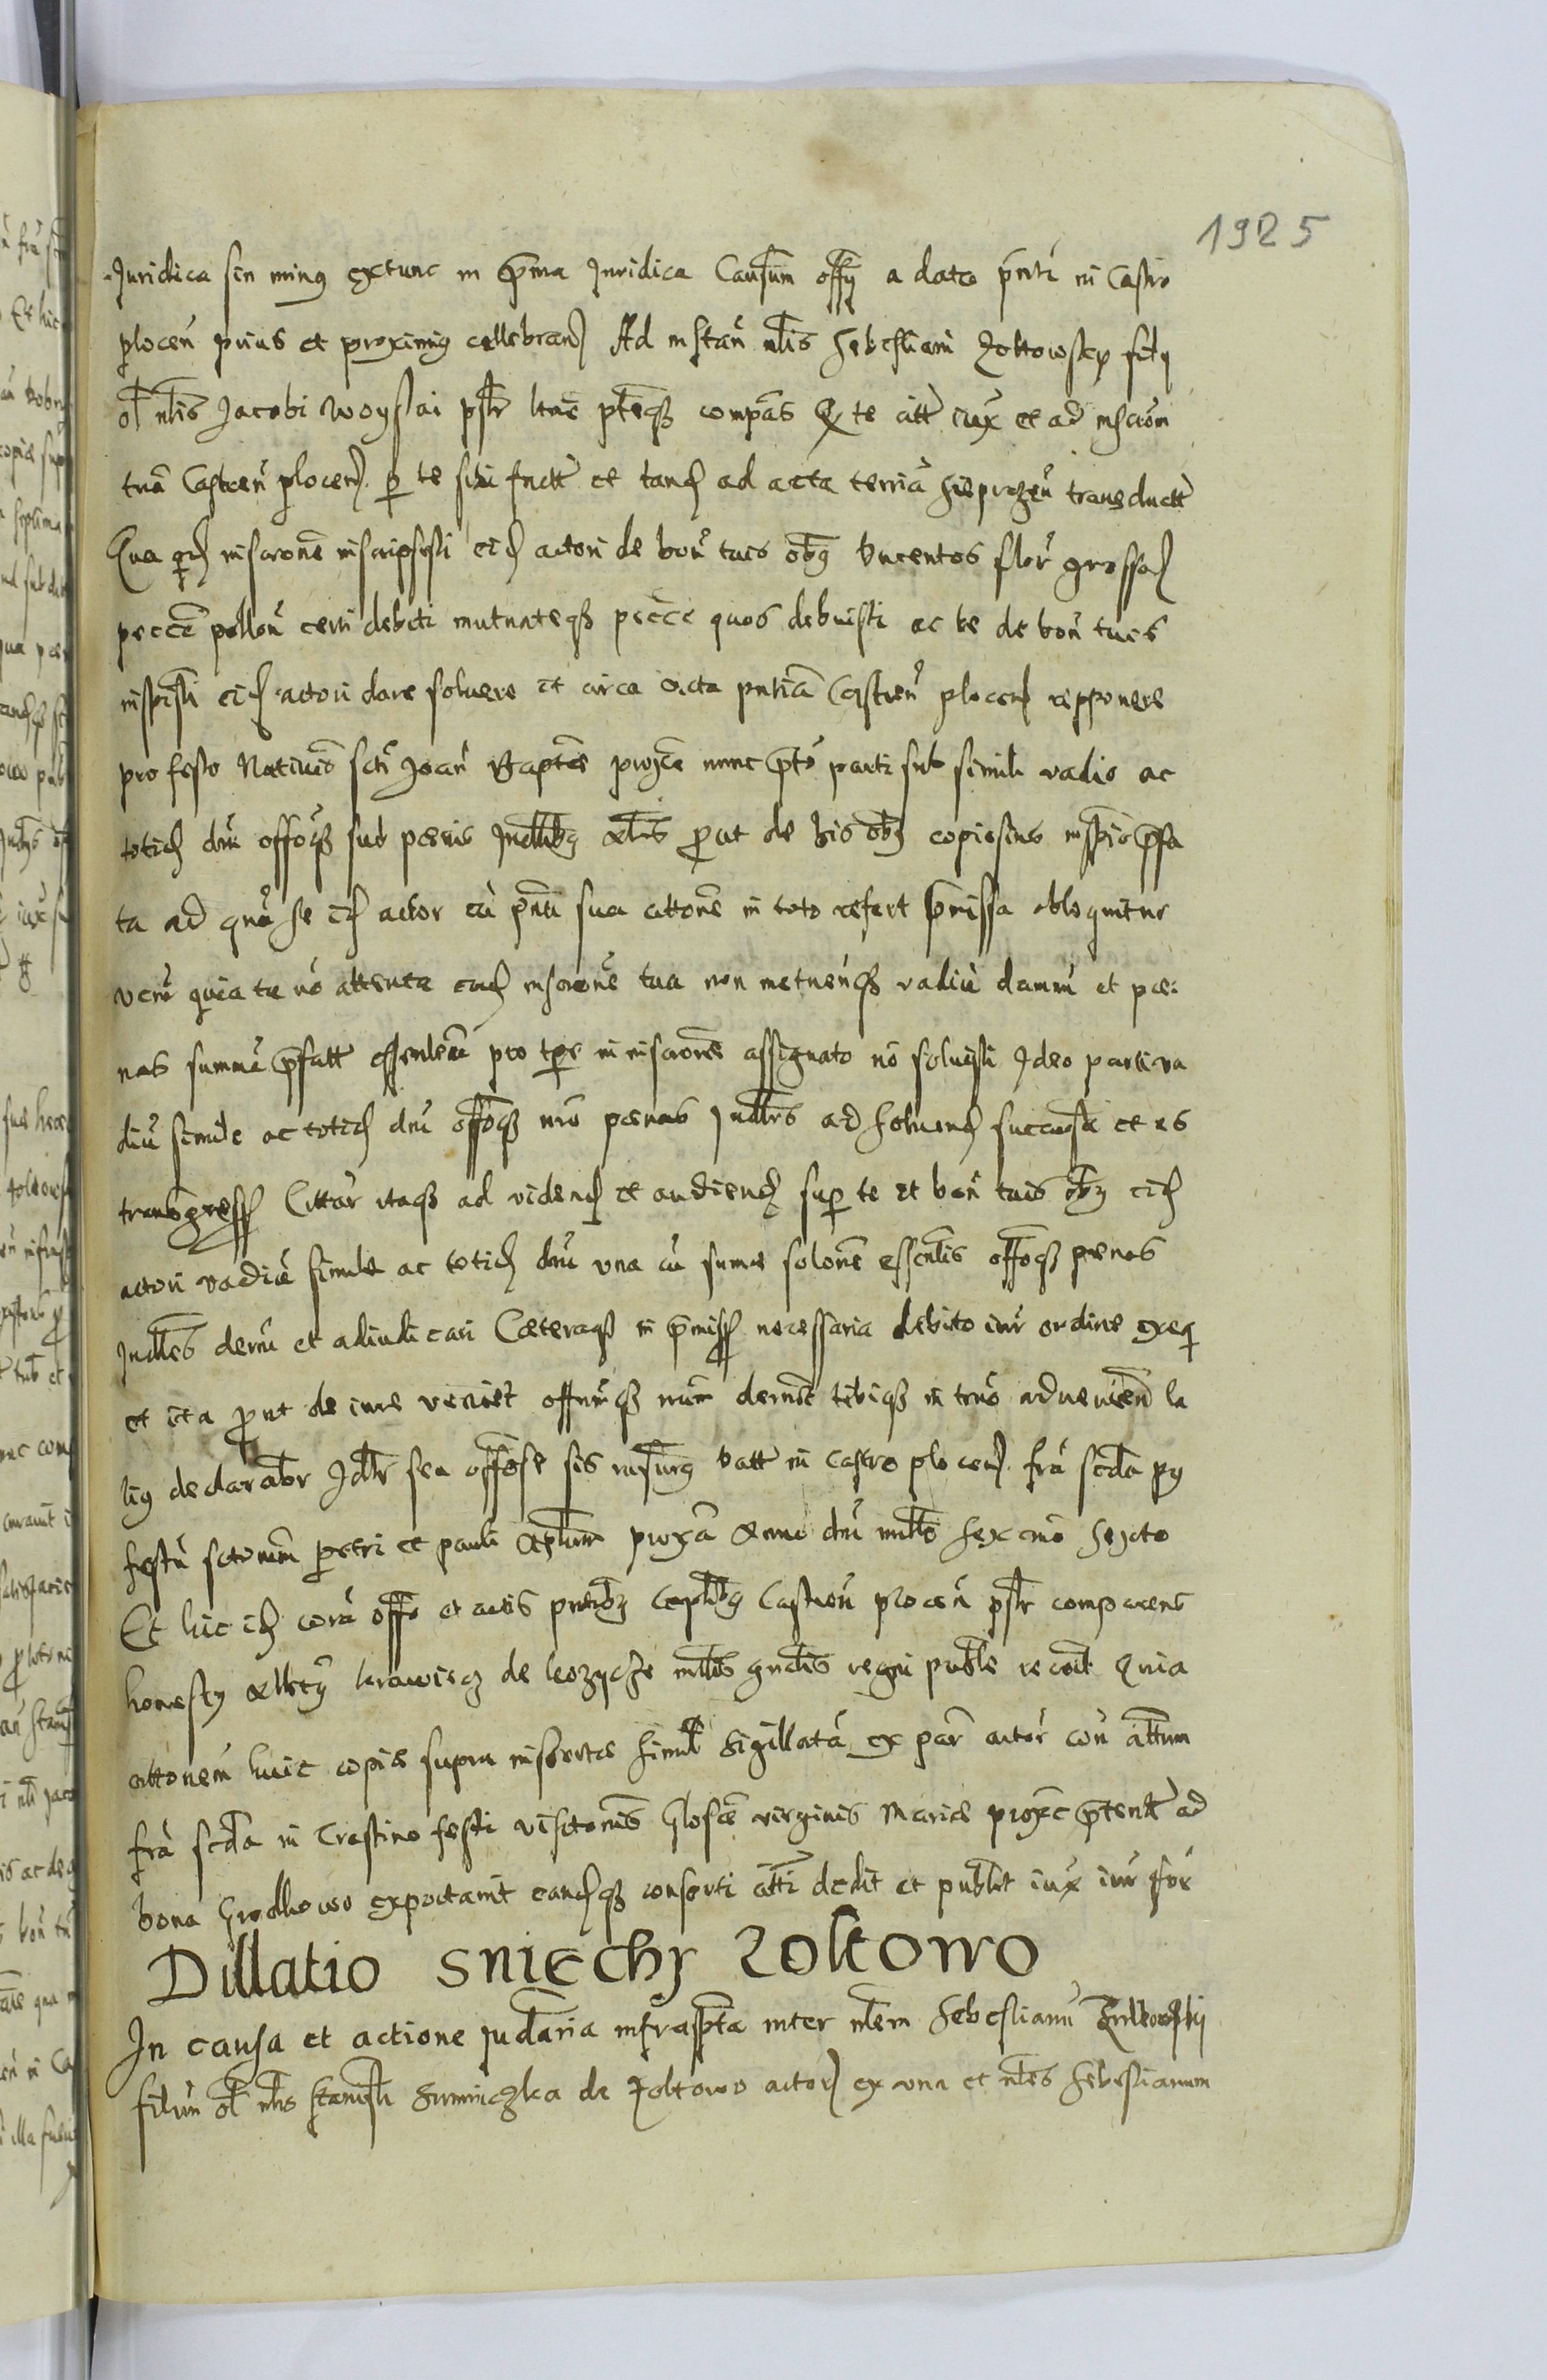 1925
Juridica sin minus extunc in p̄ma Juridica Causarum offy a data pn̄ti in Castro
plocen̄ prius et proximius cellebrand Ad instan̄ nlis Sebestiani Zoltowsky fily
ol nlis Jacobi Woyslai pslr ltme pteq compās Qr te citt iux et ad inscrōm
tuā Castren̄ plocen p te sibi factt et tand ad acta terriā Sieprczen̄ transductt
Qua qd inscronē inscripsisti eid actori de bon̄ tuis obg Ducentos flor grossos
peccē pollon̄ certi debiti mutuateq peccē quos debuisti ac te de bon̄ tuis
inspisti eid actori dare soluere et circa acta pntiā Castren̄ plocen reponere
pro festo Natiuitō scti Joan̄ Baptē proxē nunc p̄to parti sub simili vadio ac
totid dnī offoq sub paenis Indlibg alis prout de his obg copiosius inspiō p̄fa
ta ad quā se id actor cū pn̄ti sua cittone in toto refert p̄missa obloquitur
verū quia tu nō attenta ead inscrone tua non metuenq vadiū damnī et pae:
nas summā p̄fatt essenlem pro tpre in inscrone assignato nō soluisti Ideo parti va
diū simile ac totid dnī offoq nro paenas Indles ad soluend succubuisti et es
transgress Cittar itaq ad vidend et audiend sup te et bon̄ tuis obg eid
actori vadiū simile ac totid dnī vna cū sume solone essenlis offoq paenas
Indles decerni et adiudicari Caeteraq in p̄miss necessaria debito iur ordine exeq
et ita prout de iure veniet offumq nrum decernet tibiq in trno advenien̄ la
tius declarabtr Idlr sea offose sis rasurus Datt in Castro plocen fra scda pg
festū sctorum petri et pauli Aplorum proxā Anno dnī millō sexcmō sexto
Et hic id corā offo et actis pntibg Capliibg Castren̄ plocen̄ pslr comparens
honestus Albertg krawiecz de leozycze mlis gnalis regni publē recoult Quia
cittonem huic copia supra insertae simil sigillatā ex par actor con̄ attum
fra scda in Crastino festi visitonis Gloscē virginis Mariae proxē p̄tentt ad
bona Grodkowo exportauit eandq consorti atti dedit et publt iux iur for
Dillatio Sniechy Zoltowo
In causa et actione judiaria infrasp̄ta inter nlem Sebestianū Zoltowsky
filium ol nlis Stanisli Suminczka de Zoltowo actor ex vna et nles Sebestianum